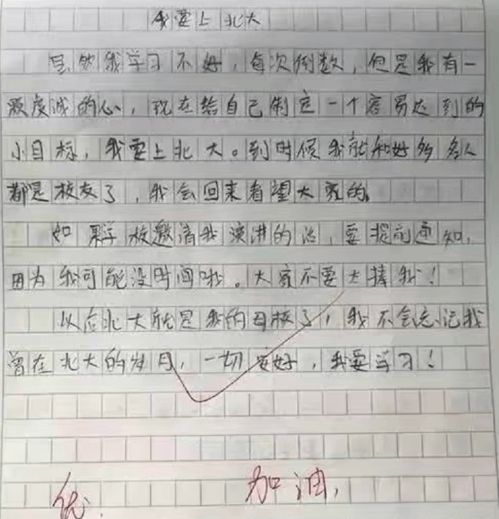 我要上北大
虽然我学习不好，每次倒数，但是我有一
颗虔诚的心，现在给自己制定一个容易达到的
小目标，我要上北大。到时候我就和好多名人
都是校友了，我会回来看望大家的。
如果学校邀请我演讲的话，要提前通知，
因为我可能没时间哦。大家不要太捧我！
以后北大就是我的母校了，我不会忘记我
曾在北大的岁月，一切安好，我要学习！
优. 加油,